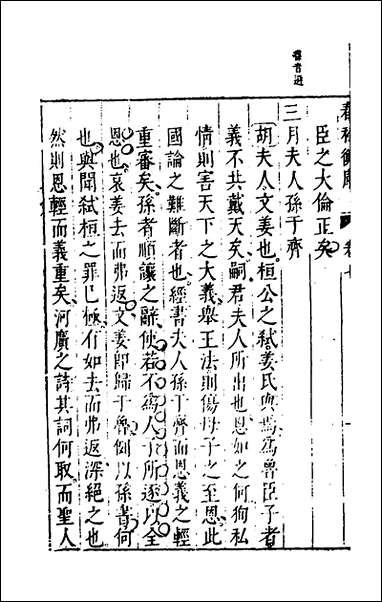 春秋衡庫 卷七
臣之大倫正矣
三月夫人孫于齊
胡夫人文姜也桓公之弑姜氏與焉爲魯臣子者
義不共戴天矣嗣君夫人所出也恩如之何狥私
情則害天下之大義舉王法則傷母子之至恩此
國論之難斷者也經書夫人孫于齊而恩義之輕
重審矣孫者順讓之辭使若不爲人子所逐以全
恩也哀姜去而弗返文姜卽歸于魯例以孫書何
也與聞弑桓之罪已極有如去而弗返深絕之也
然則恩輕而義重矣河廣之詩其詞何取而聖人